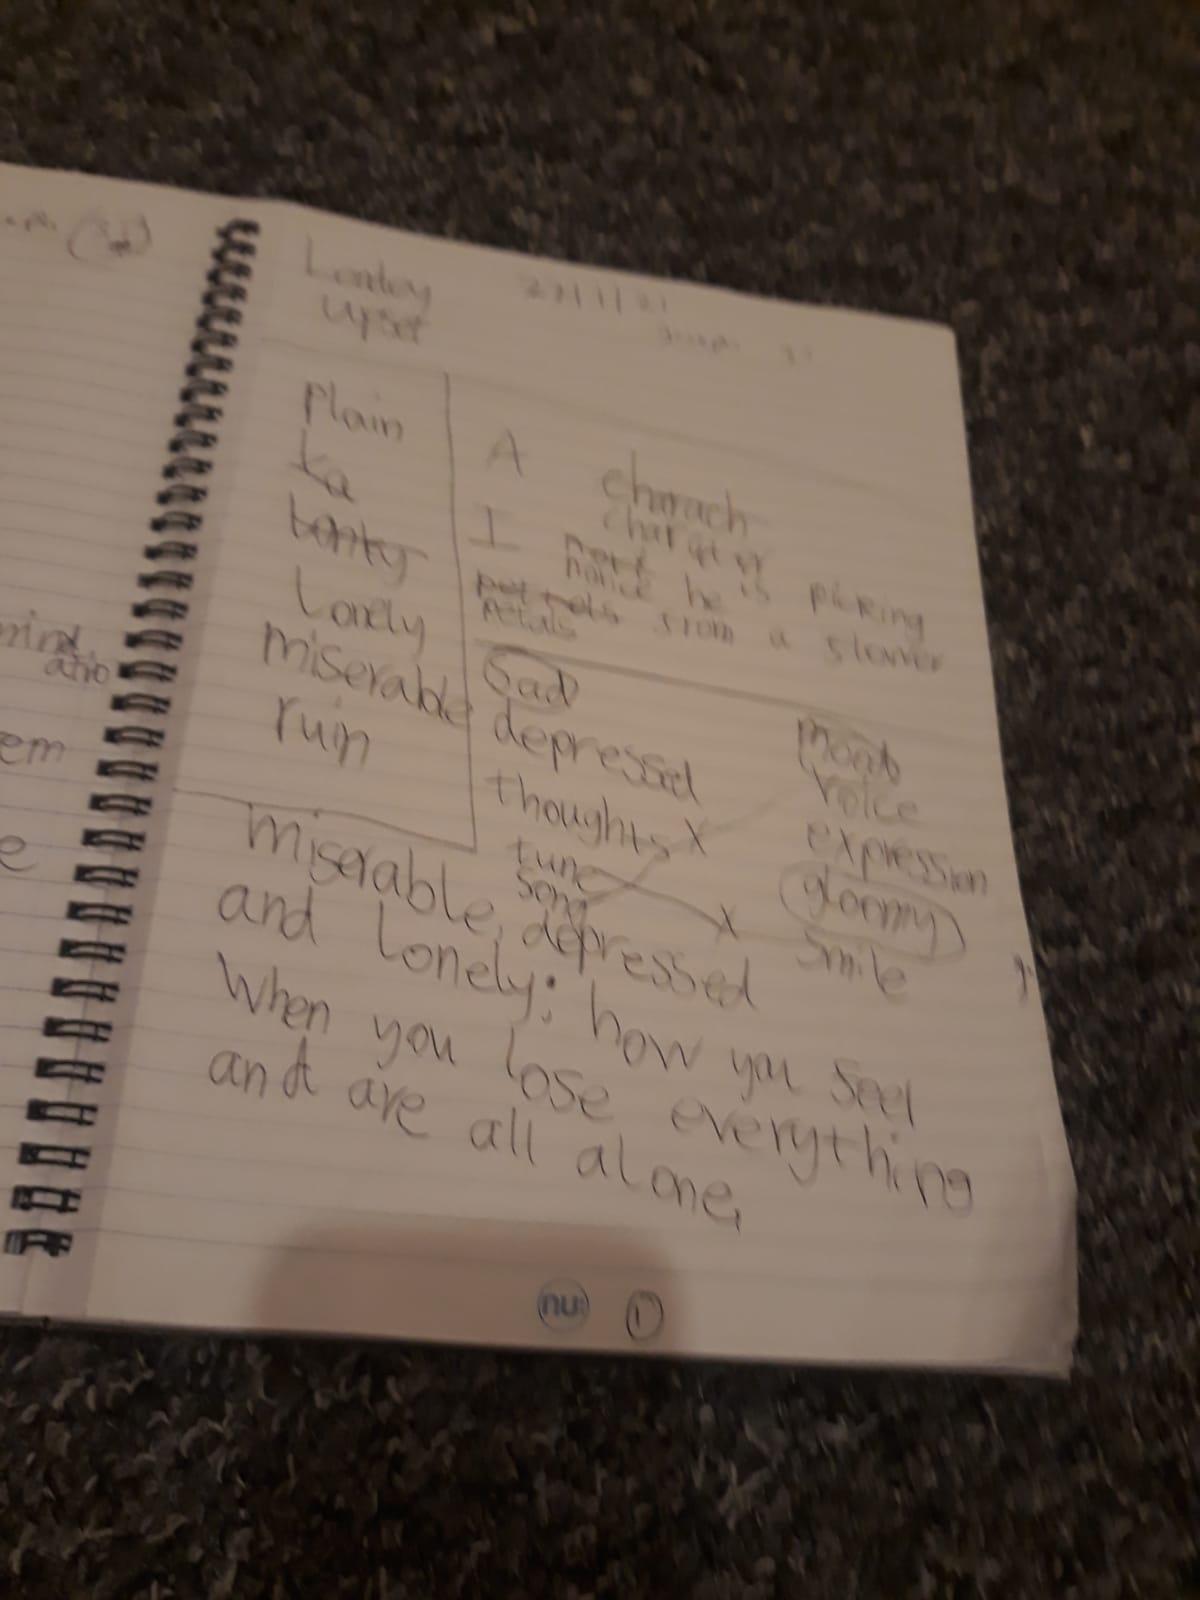 Lonley
Upset
27/1/21
plain
La
lonley
Lonely
miserable
ruin
A charach
charater
I noti
notice he is picking
pet tals
petals srom a slower
Sad
depressed
thoughts x
tune
song
x
moods
voice
expression
gloomy
smile
miserable, depressed
and lonely: how you seel
when you lose everything
and are all alone,
nu:
1
mind
atio
em
e